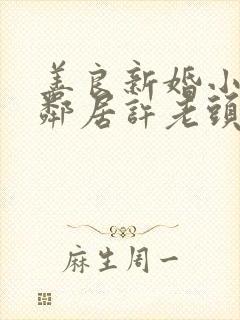 善良新婚小
鄰居許老頭
麻生周一